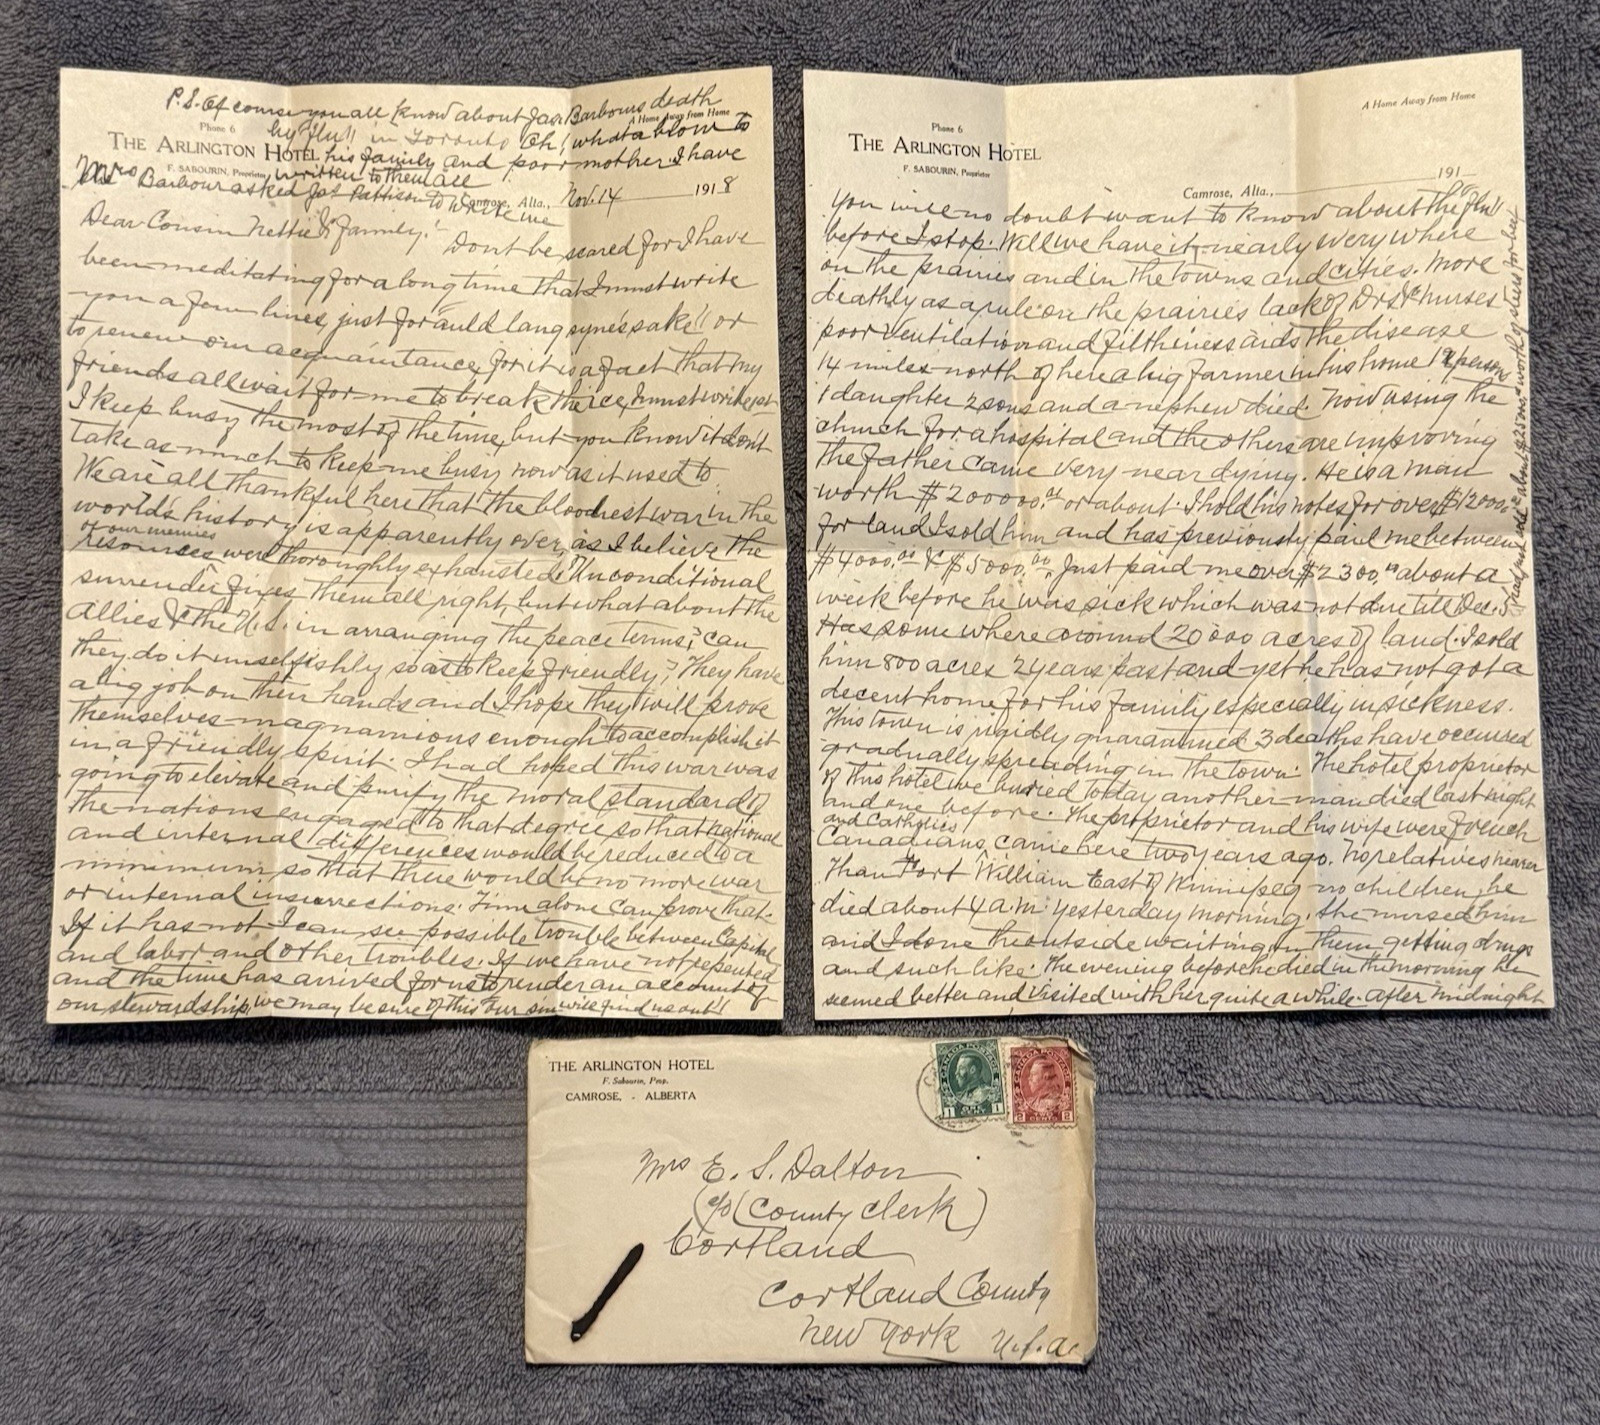 P.S. Of course you all know about Jas. Barbours death
by "flu" in Toronto Oh! what a blow to
his family and poor mother. I have
written to them all
Mrs Barbour asked Jas Pattison to write me
Phone 6
A Home Away from Home
THE ARLINGTON HOTEL
F. SABOURIN, Proprietor
Camrose, Alta., Nov. 14 1918
Dear Cousin Nettie & Family!
Don't be scared for I have
been meditating for a long time that I must write
you a few lines, just for "auld lang syne's sake" or
to renew our acquaintance, for it is a fact that my
friends all wait for me to break the ice, I must write 1st
I keep busy the most of the time, but you know it don't
take as much to keep me busy now as it used to.
We are all thankful here that the bloodiest war in the
world's history is apparently over, as I believe the
of our enemies
resources were thoroughly exhausted. "Unconditional
surrender" fixes them all right, but what about the
Allies & the U.S. in arranging the peace terms? Can
they do it unselfishly so as to keep friendly? They have
a big job on their hands and I hope they will prove
themselves magnamious enough to accomplish it
in a friendly spirit. I had hoped this war was
going to elevate and purify the moral standard of
the nations engaged to that degree so that national
and internal differences would be reduced to a
minimum so that there would be no more war
or internal insurrections. Time alone can prove that.
If it has not I can see possible trouble between Capital
and labor and other troubles. If we have not repented
and the time has arrived for us to render an account of
our stewardship, we may be sure of this "our sin will find us out"!
A Home Away from Home
Phone 6
THE ARLINGTON HOTEL
F. SABOURIN, Proprietor
Camrose, Alta., 191
You will no doubt want to know about the "flu"
before I stop. Well we have it nearly every where
on the prairies and in the towns and cities. More
deathly as a rule on the prairies lack of Drs & nurses
poor ventilation and filthiness aids the disease
14 miles north of here a big farmer in his home 12 persons
1 daughter 2 sons and a nephew died. Now using the
church for a hospital and the others are improving
the father came very near dying. He is a man
worth $200000.00 or about. I hold his notes for over $12000.00
for land I sold him and has previously paid me between
$4000.00 & $5000.00. Just paid me over $2300.00 about a
week before he was sick which was not due till Dec. 5
Has some where around 20000 acres of land. I sold
him 800 acres 2 years past and yet he has not got a
decent home for his family especially in sickness.
This town is rigidly quarantined 3 deaths have occurred
gradually spreading in the town. The hotel proprietor
of this hotel we buried today another man died last night
and one before. The proprietor and his wife were French
and Catholics
Canadians, came here two years ago. No relatives nearer
than Fort William East of Winnipeg no children, he
died about 4 a.m. yesterday morning. She nursed him
and I done the outside waiting on them getting drugs
and such like. The evening before he died in the morning he
seemed better and visited with her quite a while. After midnight
about $2500.00 worth of steers for beef
THE ARLINGTON HOTEL
F. Sabourin, Prop.
CAMROSE, - ALBERTA
CANADA POSTAGE
1 ONE CENT 1
CANADA POSTAGE
2 CENTS 2
Mrs E. S. Dalton
c/o (County Clerk)
Cortland
Cortland County
New York U.S.A.